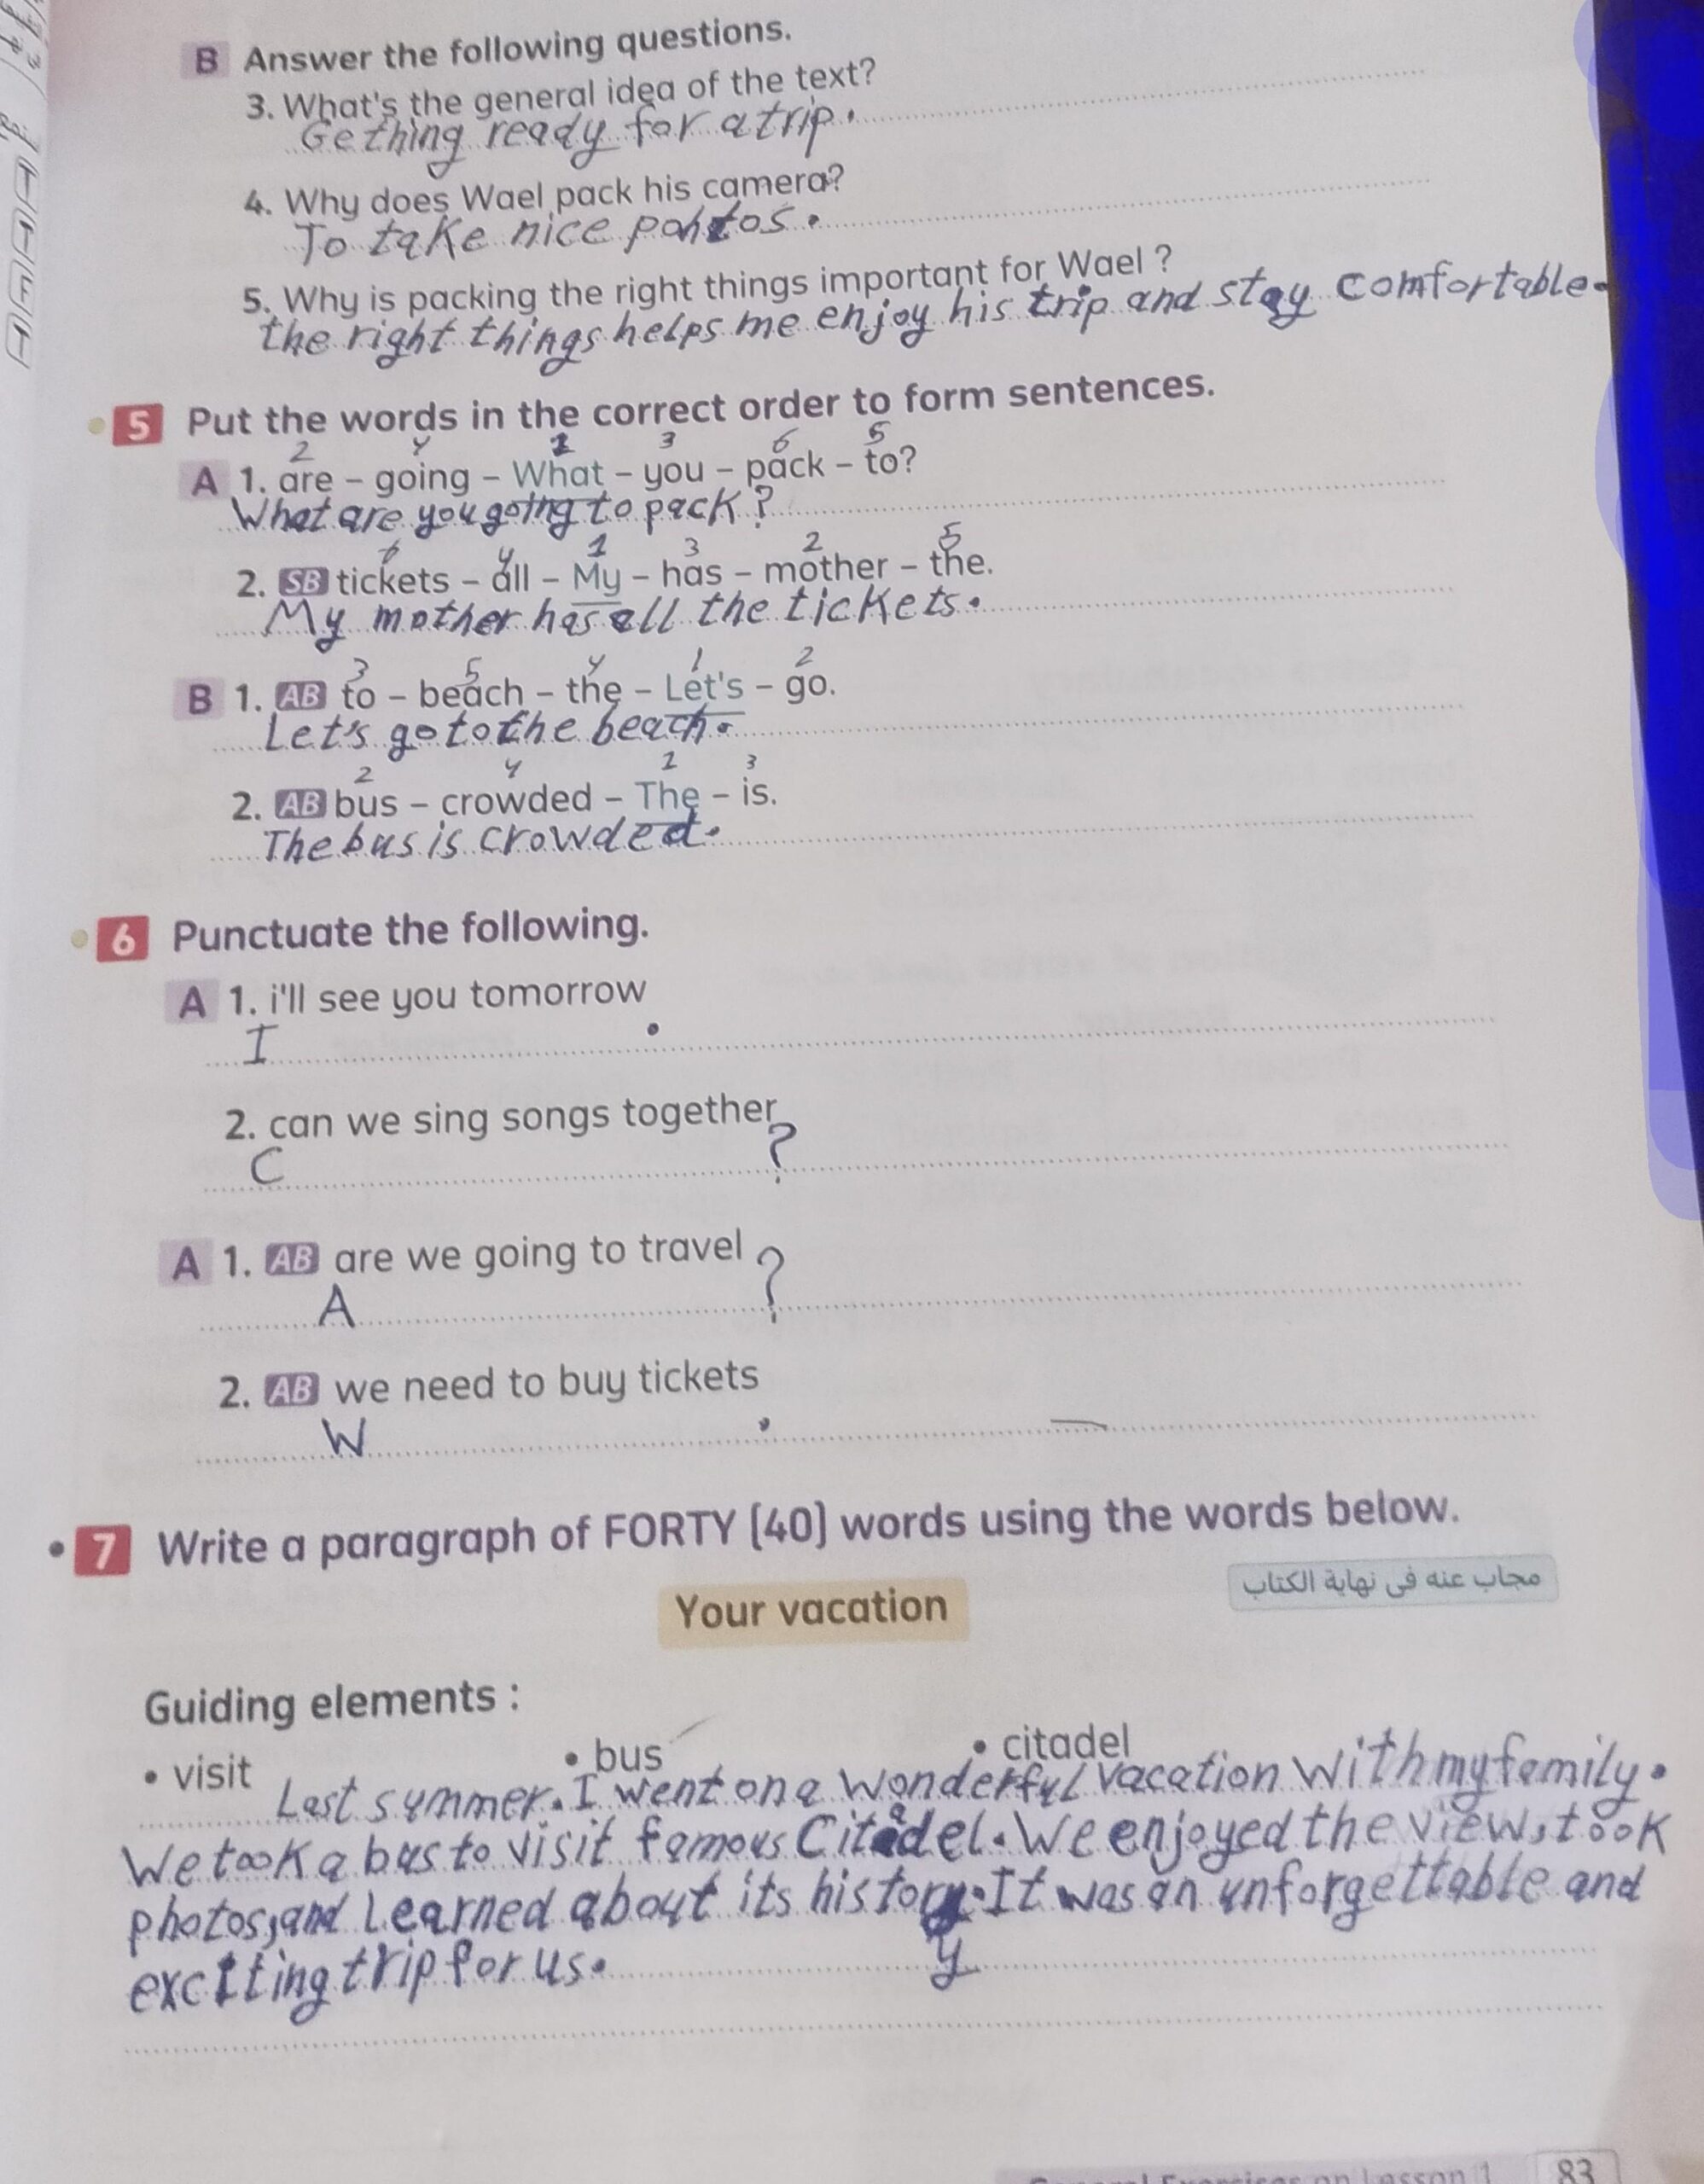 B Answer the following questions.
3. What's the general idea of the text?
Gething ready for a trip.
4. Why does Wael pack his camera?
To take nice pohtos.
5. Why is packing the right things important for Wael ?
the right things helps me enjoy his trip and stay comfortable.
5 Put the words in the correct order to form sentences.
2 4 1 3 6 5
A 1. are – going – What – you – pack – to?
What are you going to pack?
6 4 1 3 2 5
2. SB tickets – all – My – has – mother – the.
My mother has all the tickets.
3 5 4 1 2
B 1. AB to – beach – the – Let's – go.
Let's go to the beach.
2 4 1 3
2. AB bus – crowded – The – is.
The bus is crowded.
6 Punctuate the following.
A 1. i'll see you tomorrow
I .
2. can we sing songs together
C ?
A 1. AB are we going to travel
A ?
2. AB we need to buy tickets
W .
7 Write a paragraph of FORTY (40) words using the words below.
مجاب عنه فى نهاية الكتاب
Your vacation
Guiding elements :
• visit • bus • citadel
Last summer. I went on a wonderful vacation with my family.
We took a bus to visit famous Citadel. We enjoyed the view, took
photos, and Learned about its history. It was an unforgettable and
y
exciting trip for us.
General Exercises on Lesson 1 83